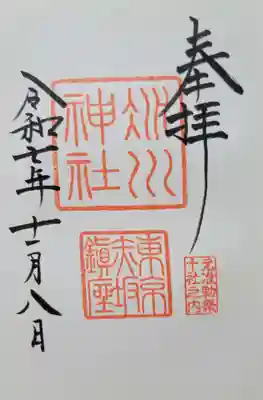 奉拝
氷川
神社
東京
赤坂
鎮座
準勅祭
十社之内
令和七年十一月八日